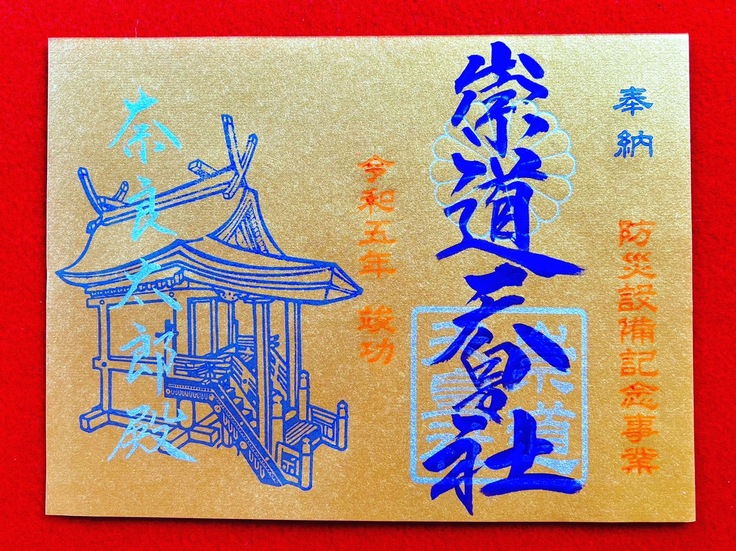 奉納
防災設備記念事業
崇道天皇社
令和五年 竣功
奈良太郎殿